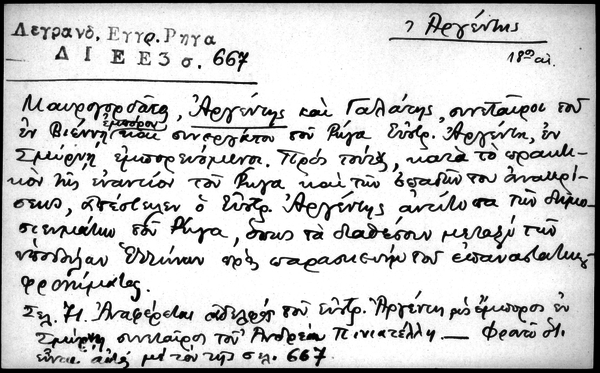 Λεγρανδ, Εγγρ. Ρηγα
ΔΙΕΕ 3 σ. 667
Ἀργέντης
18ος αἰ.
Μαυρογορδάτος, Ἀργέντης καὶ Γαλάτης, συνεταῖροι τοῦ
ἐν Βιέννῃ ἐμπόρου καὶ συνεργάτου τοῦ Ρήγα Εὐστρ. Ἀργέντη, ἐν
Σμύρνῃ ἐμπορευόμενοι. Πρὸς τούτους, κατὰ τὸ πρακτι-
κὸν τῆς ἐναντίον τοῦ Ρήγα καὶ τῶν ὀπαδῶν του ἀνακρί-
σεως, ἀπέστειλεν ὁ Εὐστρ. Ἀργέντης ἀντίτυπα τῶν δημο-
σιευμάτων τοῦ Ρήγα, ὅπως τὰ διαθέσουν μεταξὺ τῶν
ὑποδούλων Ἑλλήνων πρὸς παρασκευήν τοῦ ἐπαναστατικοῦ
φρονήματος.
Σελ. 71. Ἀναφέρεται ἀδελφὸς τοῦ Εὐστρ. Ἀργέντη ὡς ἔμπορος ἐν
Σμύρνῃ συνεταῖρος τοῦ Ἀνδρέα Πινιατέλλη — Φρονῶ ὅτι
εἶναι αὐτὸς μὲ τὸν τῆς σελ. 667.